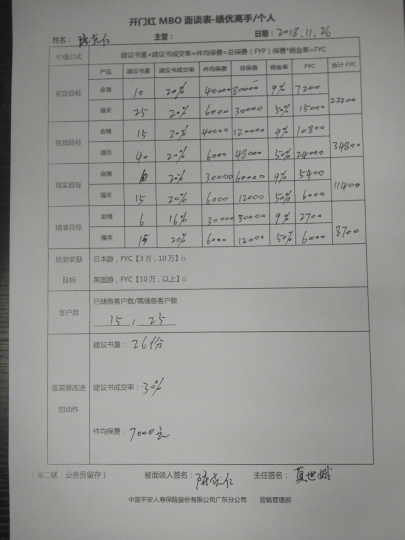 开门红 MBO 面谈表-绩优高手/个人
姓名： 主管： 日期：2018.11.26
价值公式 建议书量×建议书成交率×件均保费=总保费（FYP）保费*佣金率=FYC
产品 建议书量 建议书成交率 件均保费 总保费 佣金率 FYC 合计 FYC
初定目标 金瑞 10 20% 40000 80000 9% 7200 22200
福类 25 20% 6000 30000 50% 15000
挑战目标 金瑞 15 20% 40000 120000 9% 10800 34800
福类 40 20% 6000 48000 50% 24000
现实目标 金瑞 20% 30000 60000 9% 5400 11400
福类 15 20% 6000 12000 50% 6000
精准目标 金瑞 6 16% 30000 30000 9% 2700 8700
福类 15 20% 6000 12000 50% 6000
旅游奖励 日本游，FYC【3万，10万】□
目标 英国游，FYC【10万，以上】□
客户数 已储备客户数/需储备客户数
15 ， 25
建议书量：26份
最需要改进的动作 建议书成交率：30%
件均保费：7000元
（第二联：业务员留存） 被面谈人签名： 主任签名：
中国平安人寿保险股份有限公司广东分公司 营销管理部